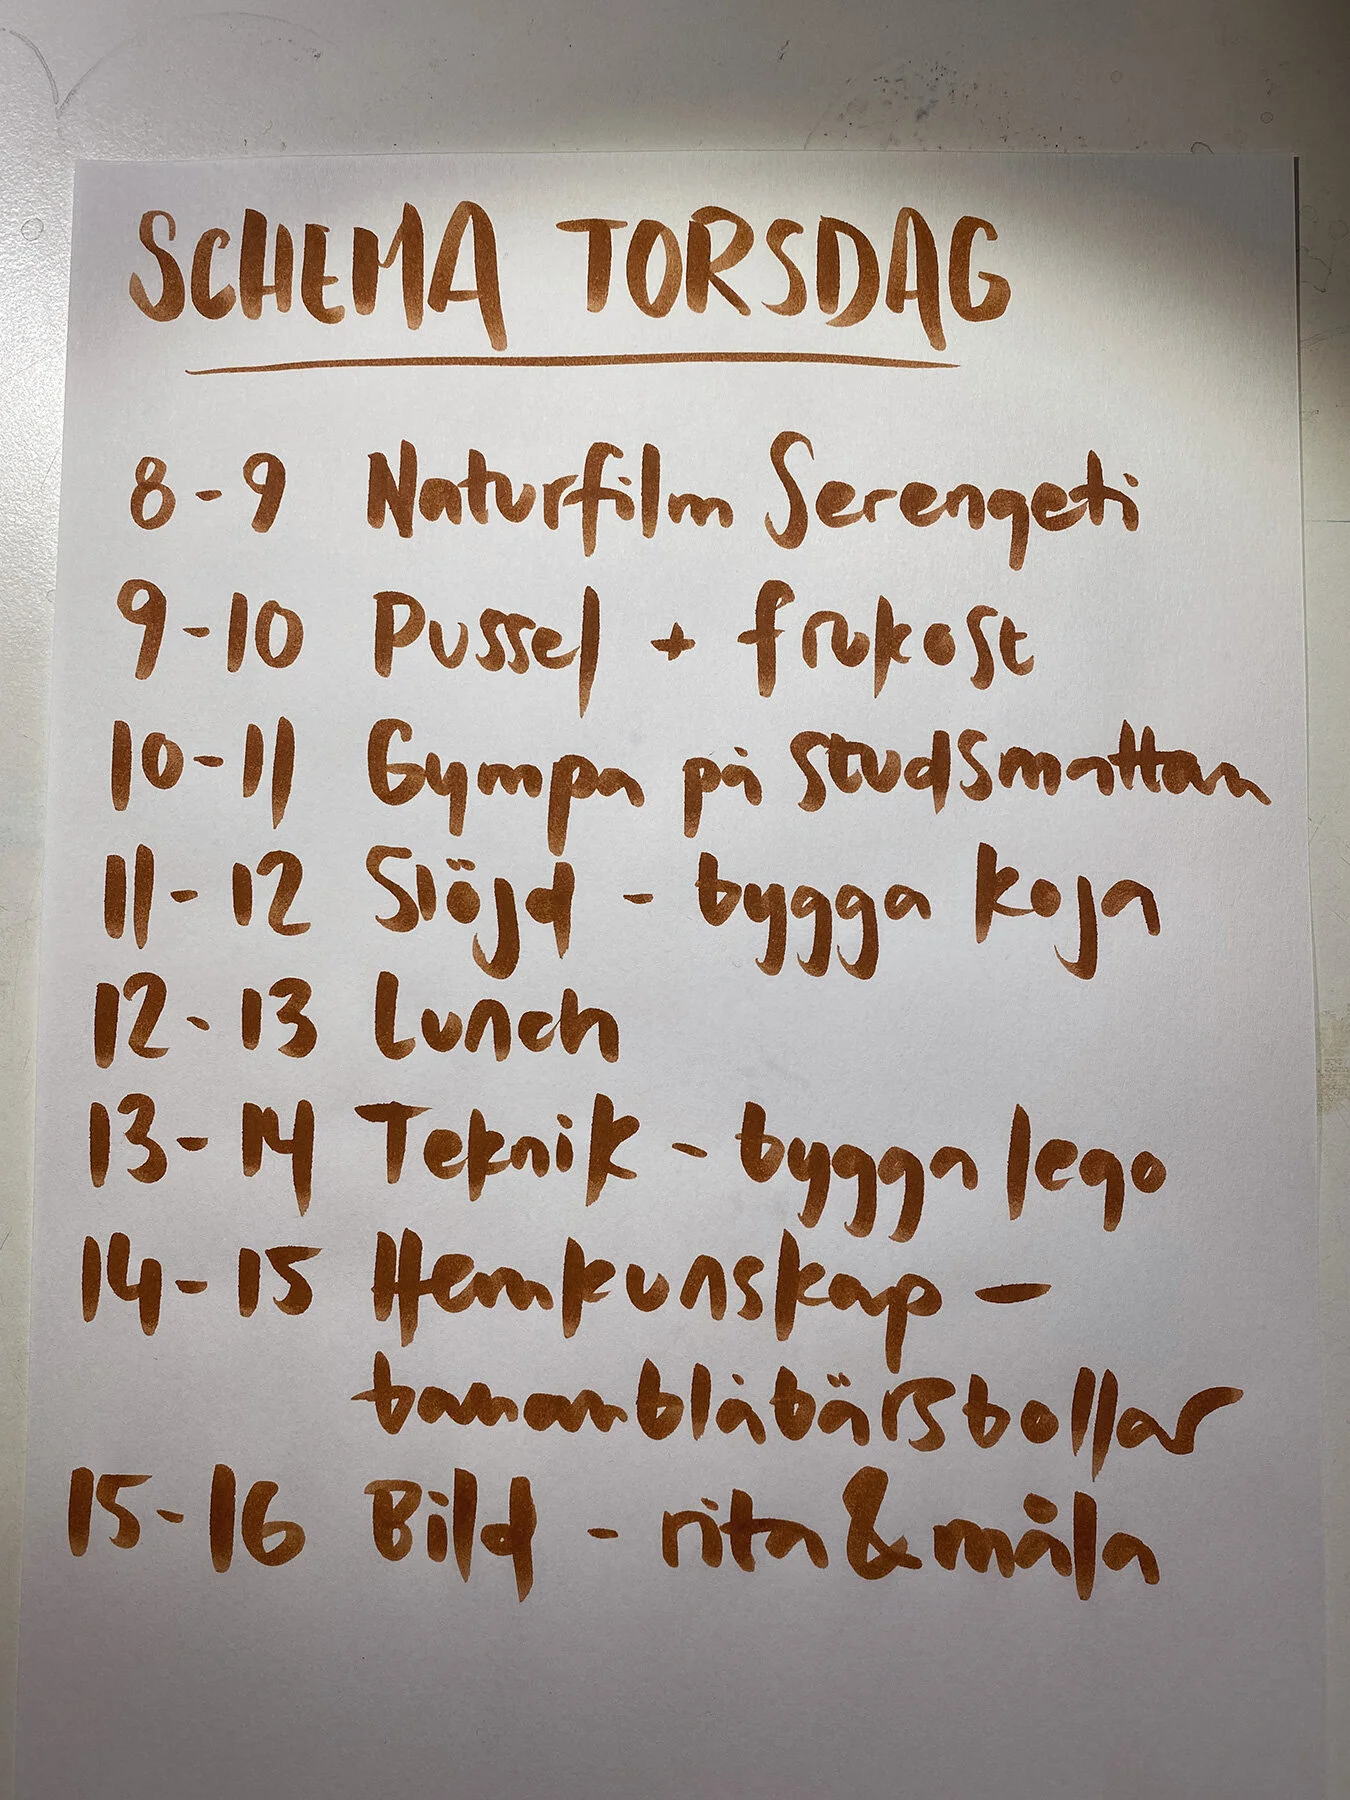 SCHEMA TORSDAG
8-9 Naturfilm Serengeti
9-10 Pussel + frukost
10-11 Gympa på studsmattan
11-12 Slöjd - bygga koja
12-13 Lunch
13-14 Teknik - bygga lego
14-15 Hemkunskap -
bananblåbärsbollar
15-16 Bild - rita & måla